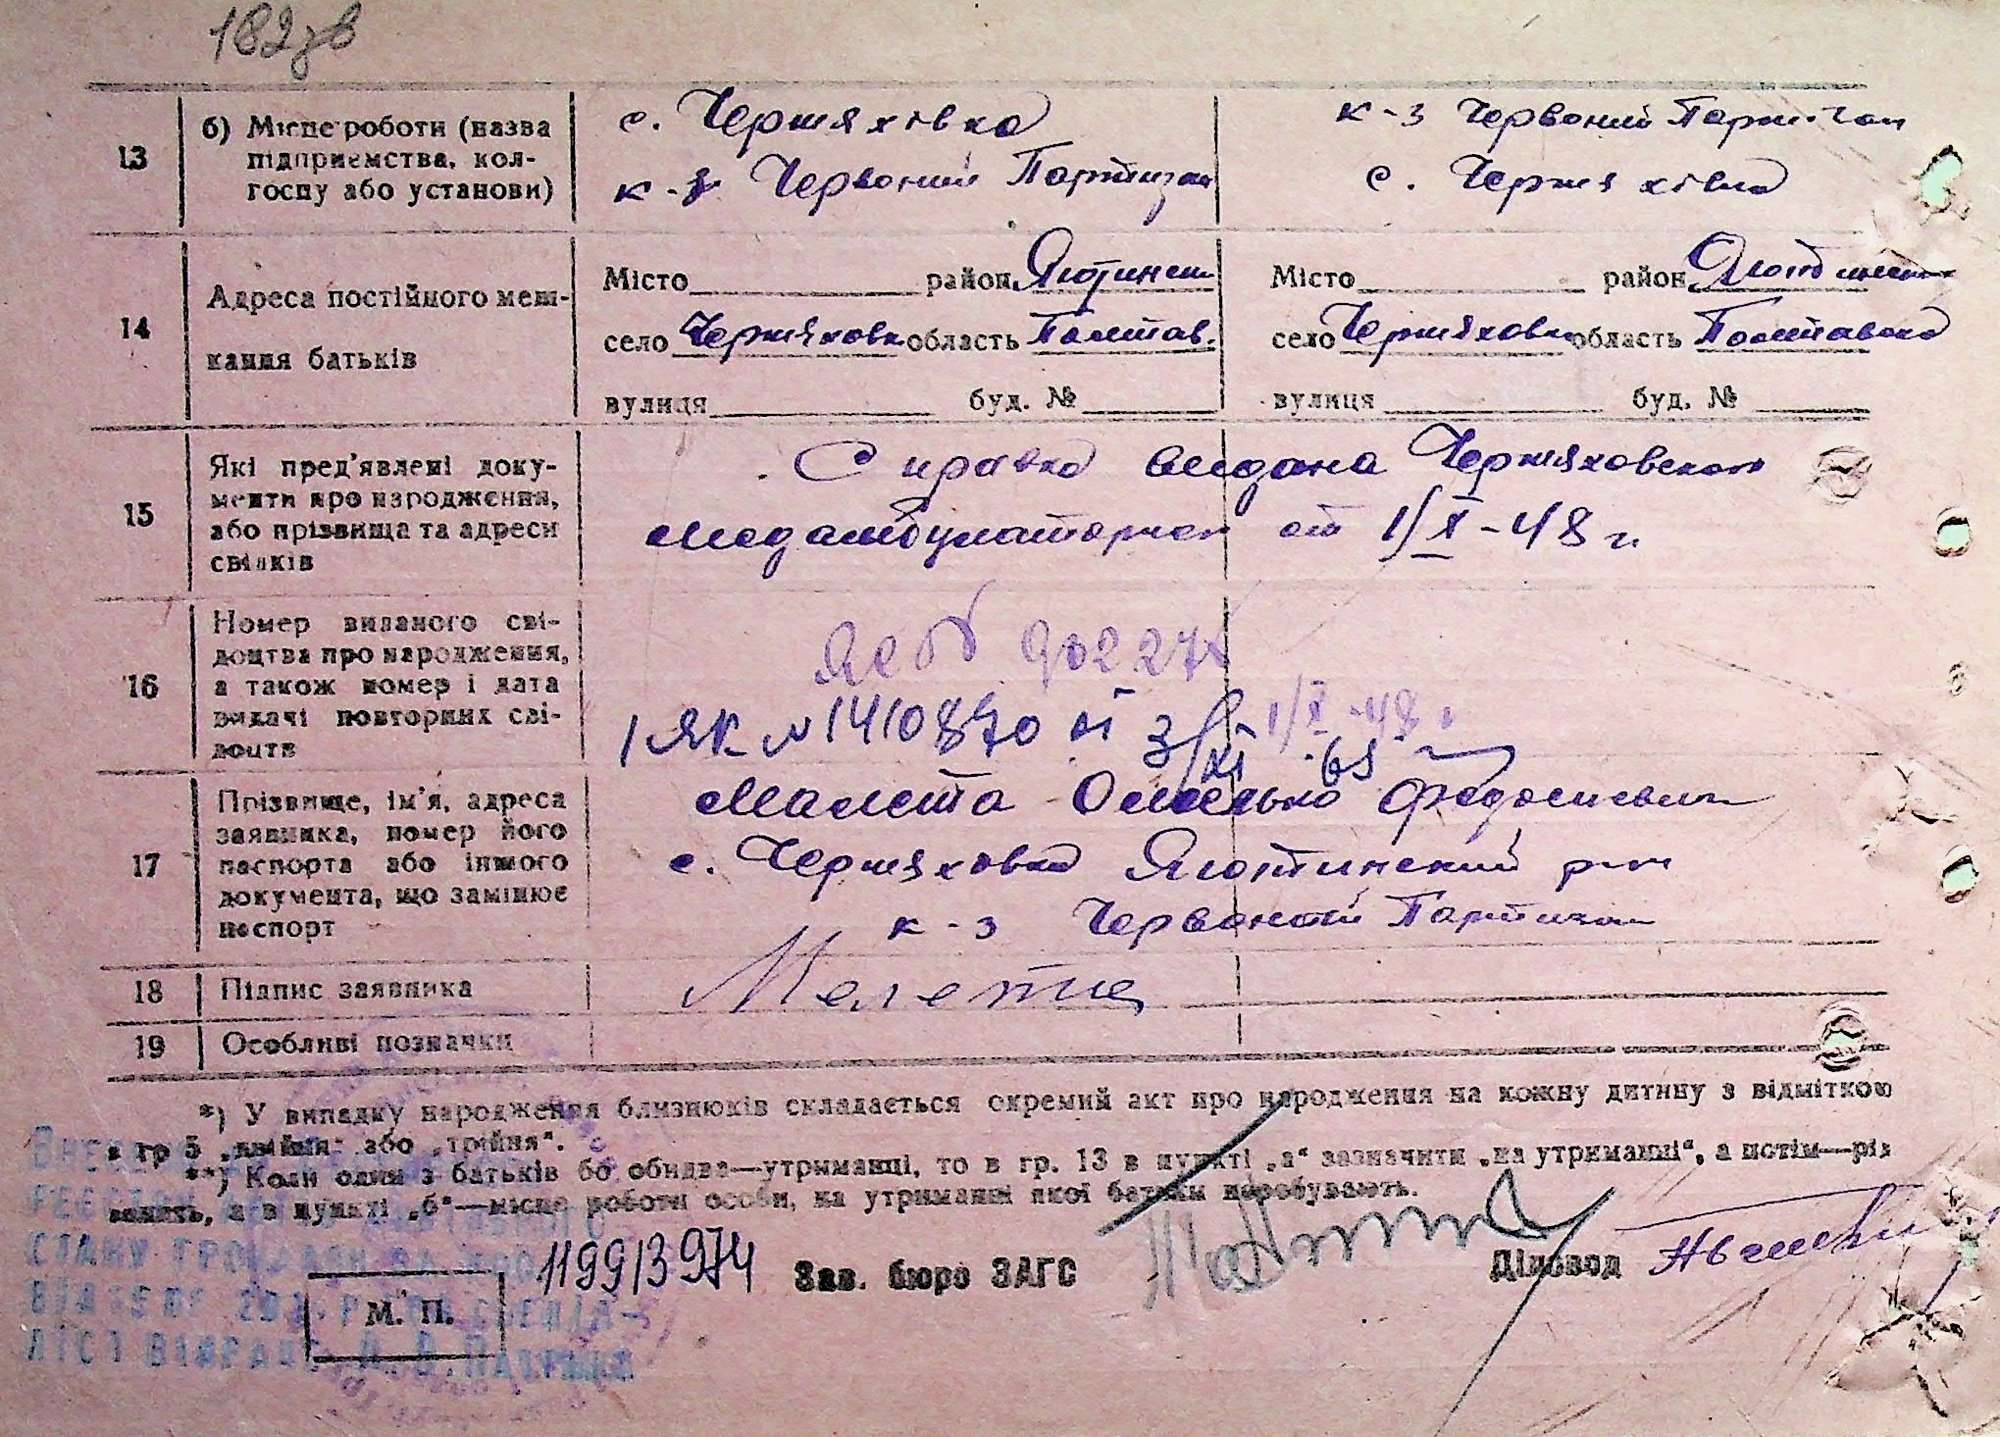 182зв
13
б) Місце роботи (назва
підприємства, кол-
госпу або установи)
с. Черняхівка
к-з Червоний Партизан
к-з Червоний Партизан
с. Черняхівка
14
Адреса постійного меш-
кання батьків
Місто район Яготинск
село Черняховка область Полтав.
вулиця буд. №
Місто район Яготинск
село Черняховка область Полтавска
вулиця буд. №
15
Які пред'явлені доку-
менти про народження,
або прізвища та адреси
свідків
Справка видана Черняховской
медамбулаторией от 1/X-48 г.
16
Номер виданого сві-
доцтва про народження,
а також номер і дата
видачі повторних сві-
доцтв
1/X-48 г
ІЯК № 1410870 от 3/XI-69
17
Прізвище, ім'я, адреса
заявника, номер його
паспорта або іншого
документа, що замінює
паспорт
Малета Омелько Федосиевич
с. Черняховка Яготинский р-н
к-з Червоний Партизан
18
Підпис заявника
Малета
19
Особливі позначки
*) У випадку народження близнюків складається окремий акт про народження на кожну дитину з відміткою
в гр 5 „двійня“ або „трійня“.
**) Коли один з батьків бо обидва—утриманці, то в гр. 13 в пункті „а“ зазначити „на утриманні“, а потім—рід
занять, а в пункті „б“—місце роботи особи, на утриманні якої батьки перебувають.
11993974
Зав. бюро ЗАГС
Діловод
М. П.